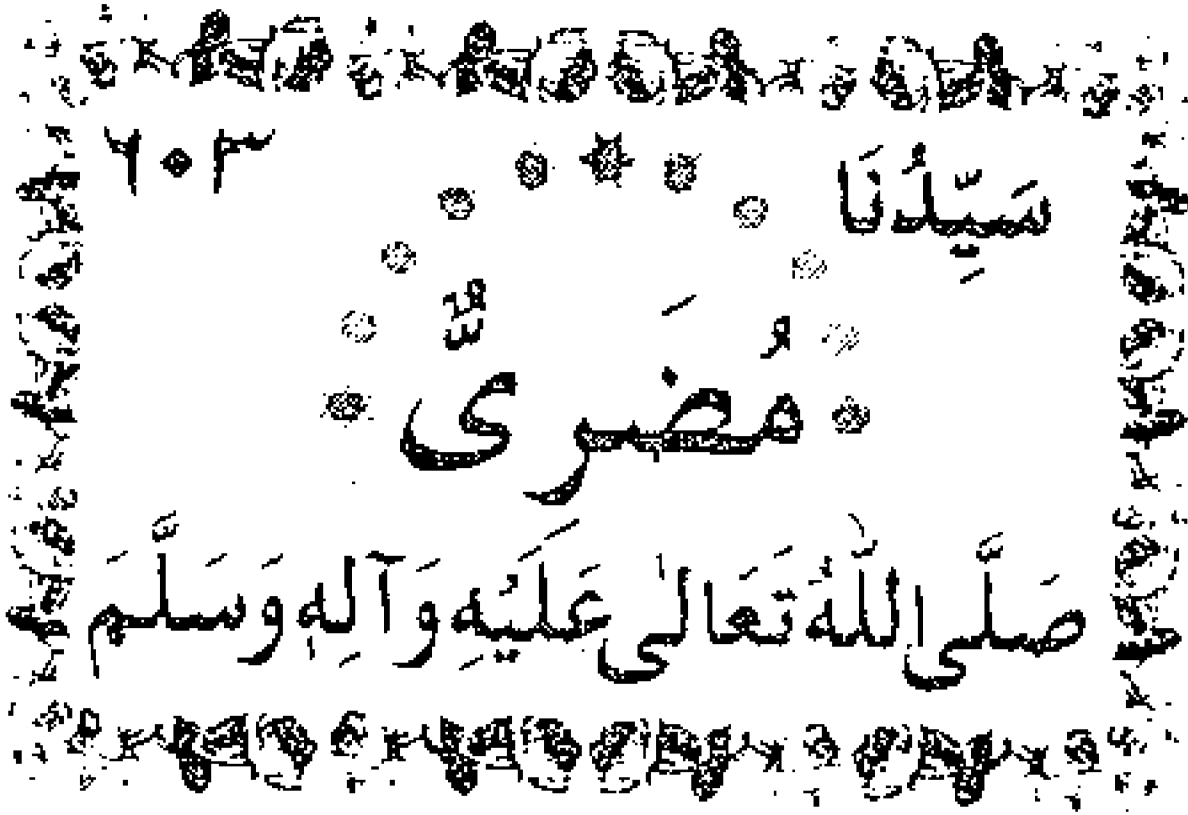 سَيِّدُنَا ٦٠٣
مُضَرِىٌّ
صَلَّى اللّٰهُ تَعَالىٰ عَلَيْهِ وَآلِهٖ وَسَلَّمَ